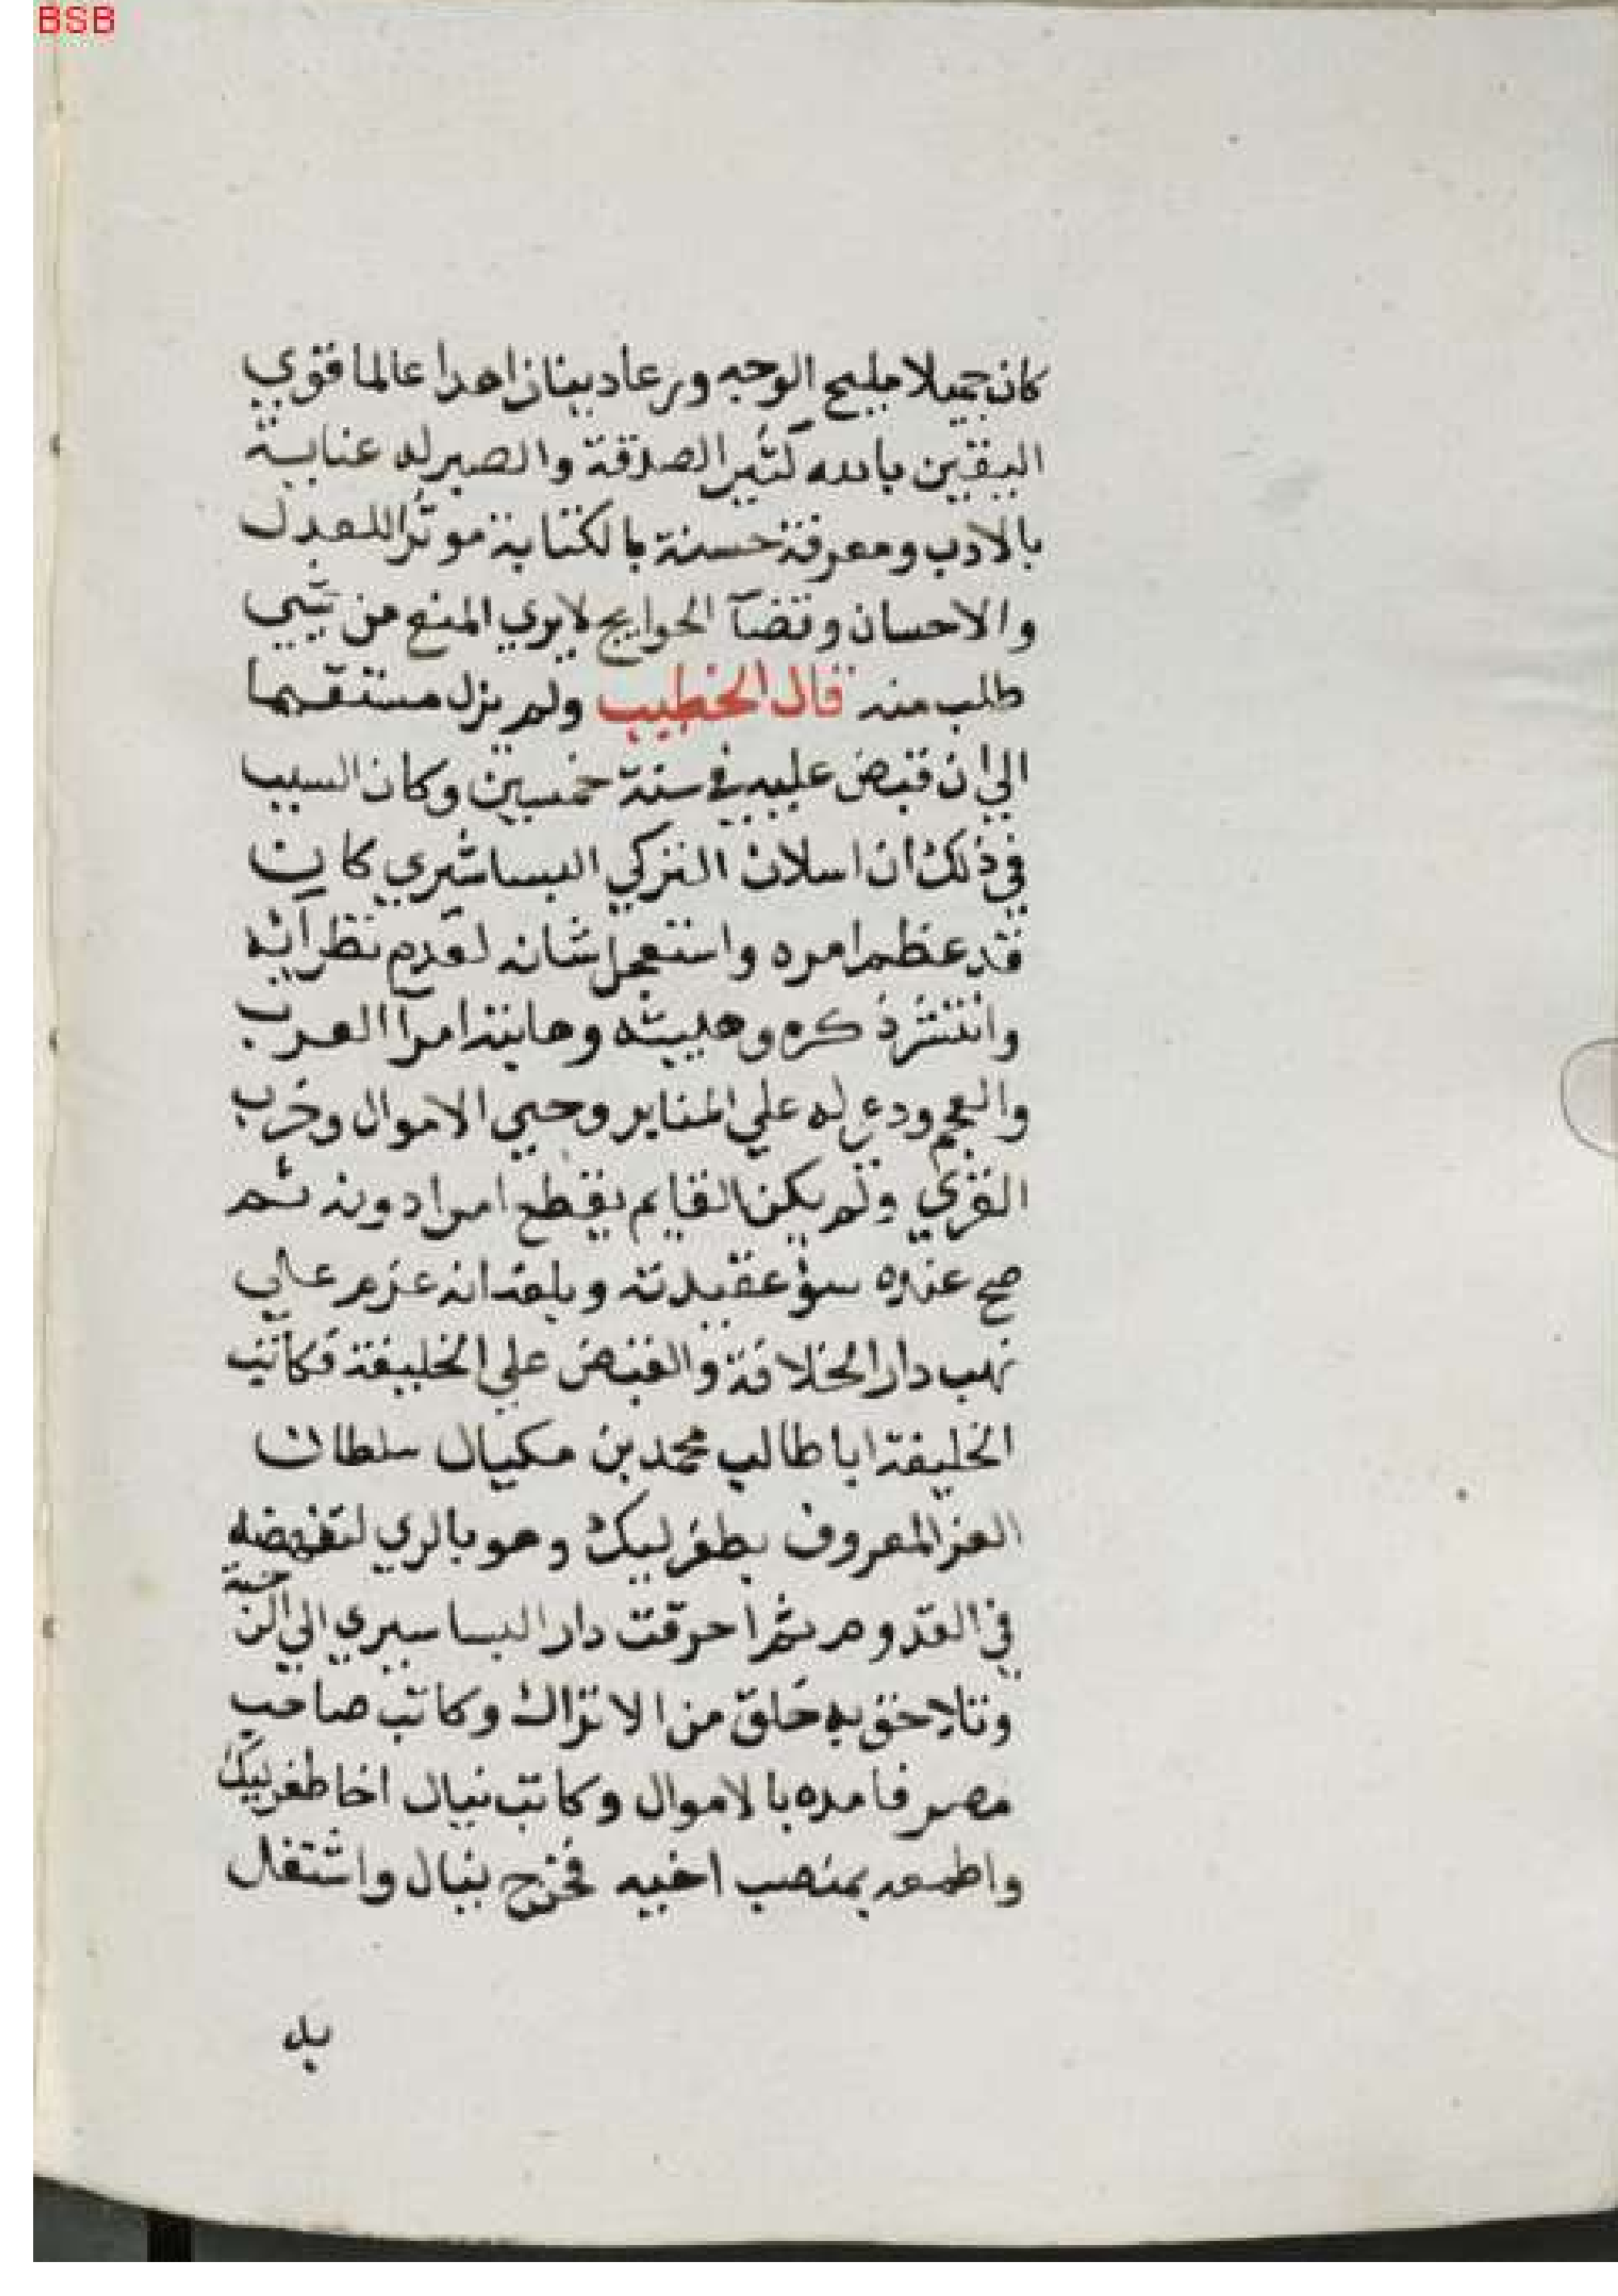 BSB
كان جميلا مليح الوجه ورعا دينا زاهدا عالما قوي
اليقين بالله كثير الصدقة والصبر له عناية
بالادب ومعرفة حسنة بالكتابة موثرا للعدل
والاحسان وقضآ الحوايج لا يري المنع من شيي
طلب منه قال الخطيب ولم يزل مستقيما
الي ان قبض عليه في سنة خمسين وكان السبب
في ذلك ان اسلان التركي البساشري كان
قد عظم امره واستعجل شانه لعدم نظرائه
وانتشر ذكره وهيبته وهابته امرآ العرب
والعجم ودعي له علي المنابر وجبي الاموال وخرب
القري ولم يكن القايم يقطع امرا دونه ثم
صح عنده سؤ عقيدته وبلغه انه عزم علي
نهب دار الخلافة والقبض علي الخليفة فكاتب
الخليفة ابا طالب محمد بن مكيال سلطان
الغز المعروف بطغرلبك وهو بالري
في القدوم ثم احرقت دار البساسيري الي الرحبة
وتلاحق به خلق من الاتراك وكاتب صاحب
مصر فامده بالاموال وكاتب نيال اخا طغرلبك
واطمعه بمنصب اخيه فخرج ينال واشتغل
به